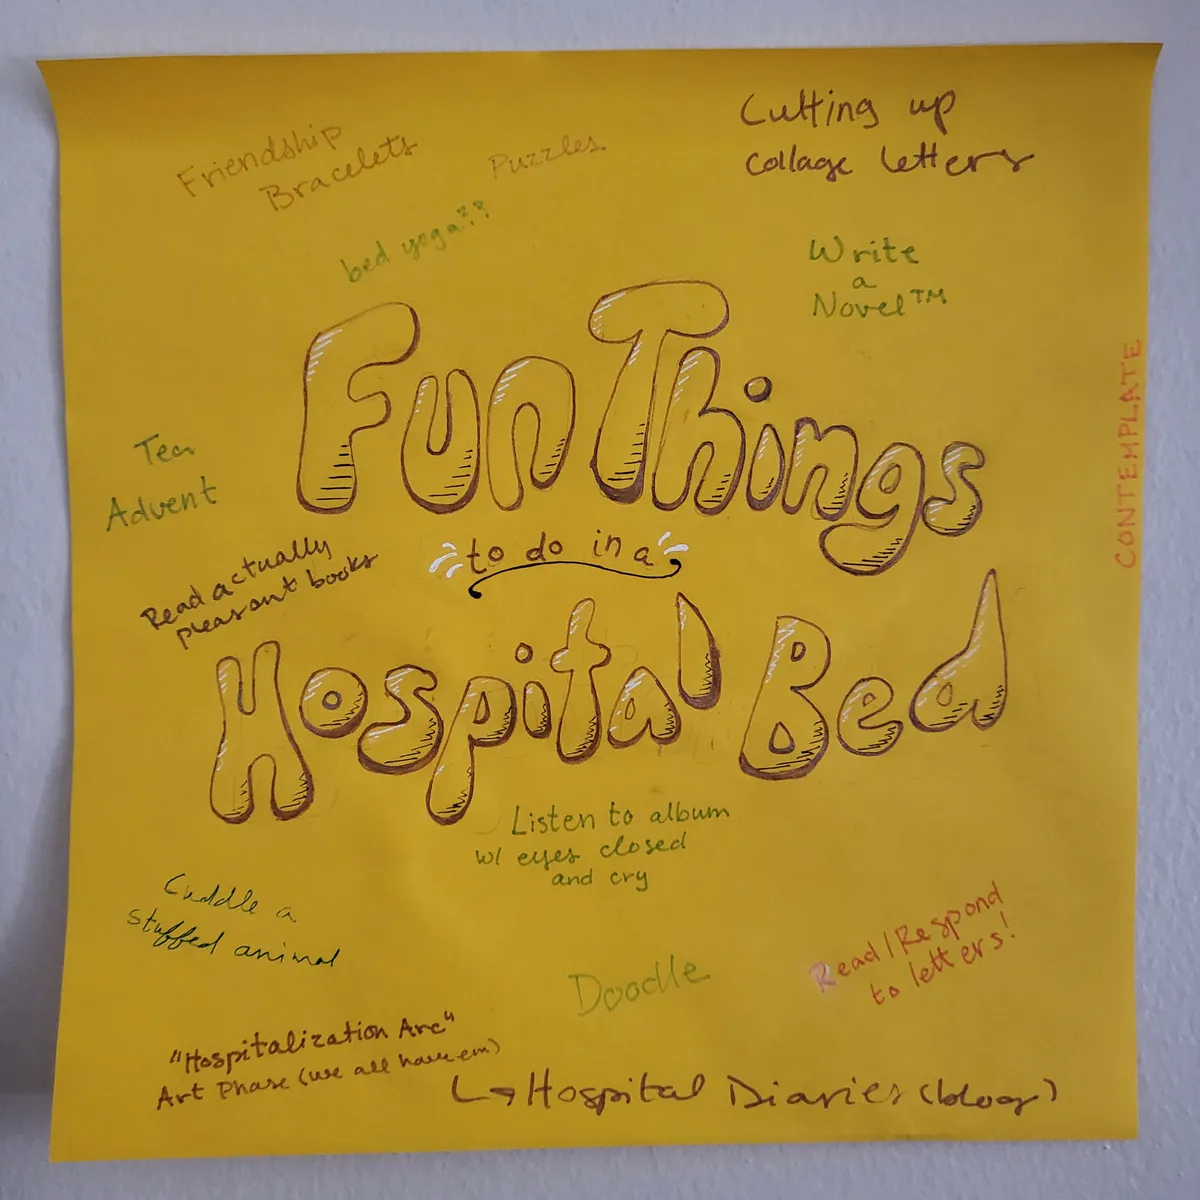 Friendship
Bracelets
Puzzles
Cutting up
collage letters
bed yoga??
Write
a
Novel™
CONTEMPLATE
Fun Things
to do in a
Hospital Bed
Tea
Advent
Read actually
pleasant books
Listen to album
w/ eyes closed
and cry
Cuddle a
stuffed animal
Doodle
Read/Respond
to letters!
"Hospitalization Arc"
Art Phase (we all have em)
↳ Hospital Diaries (blog)